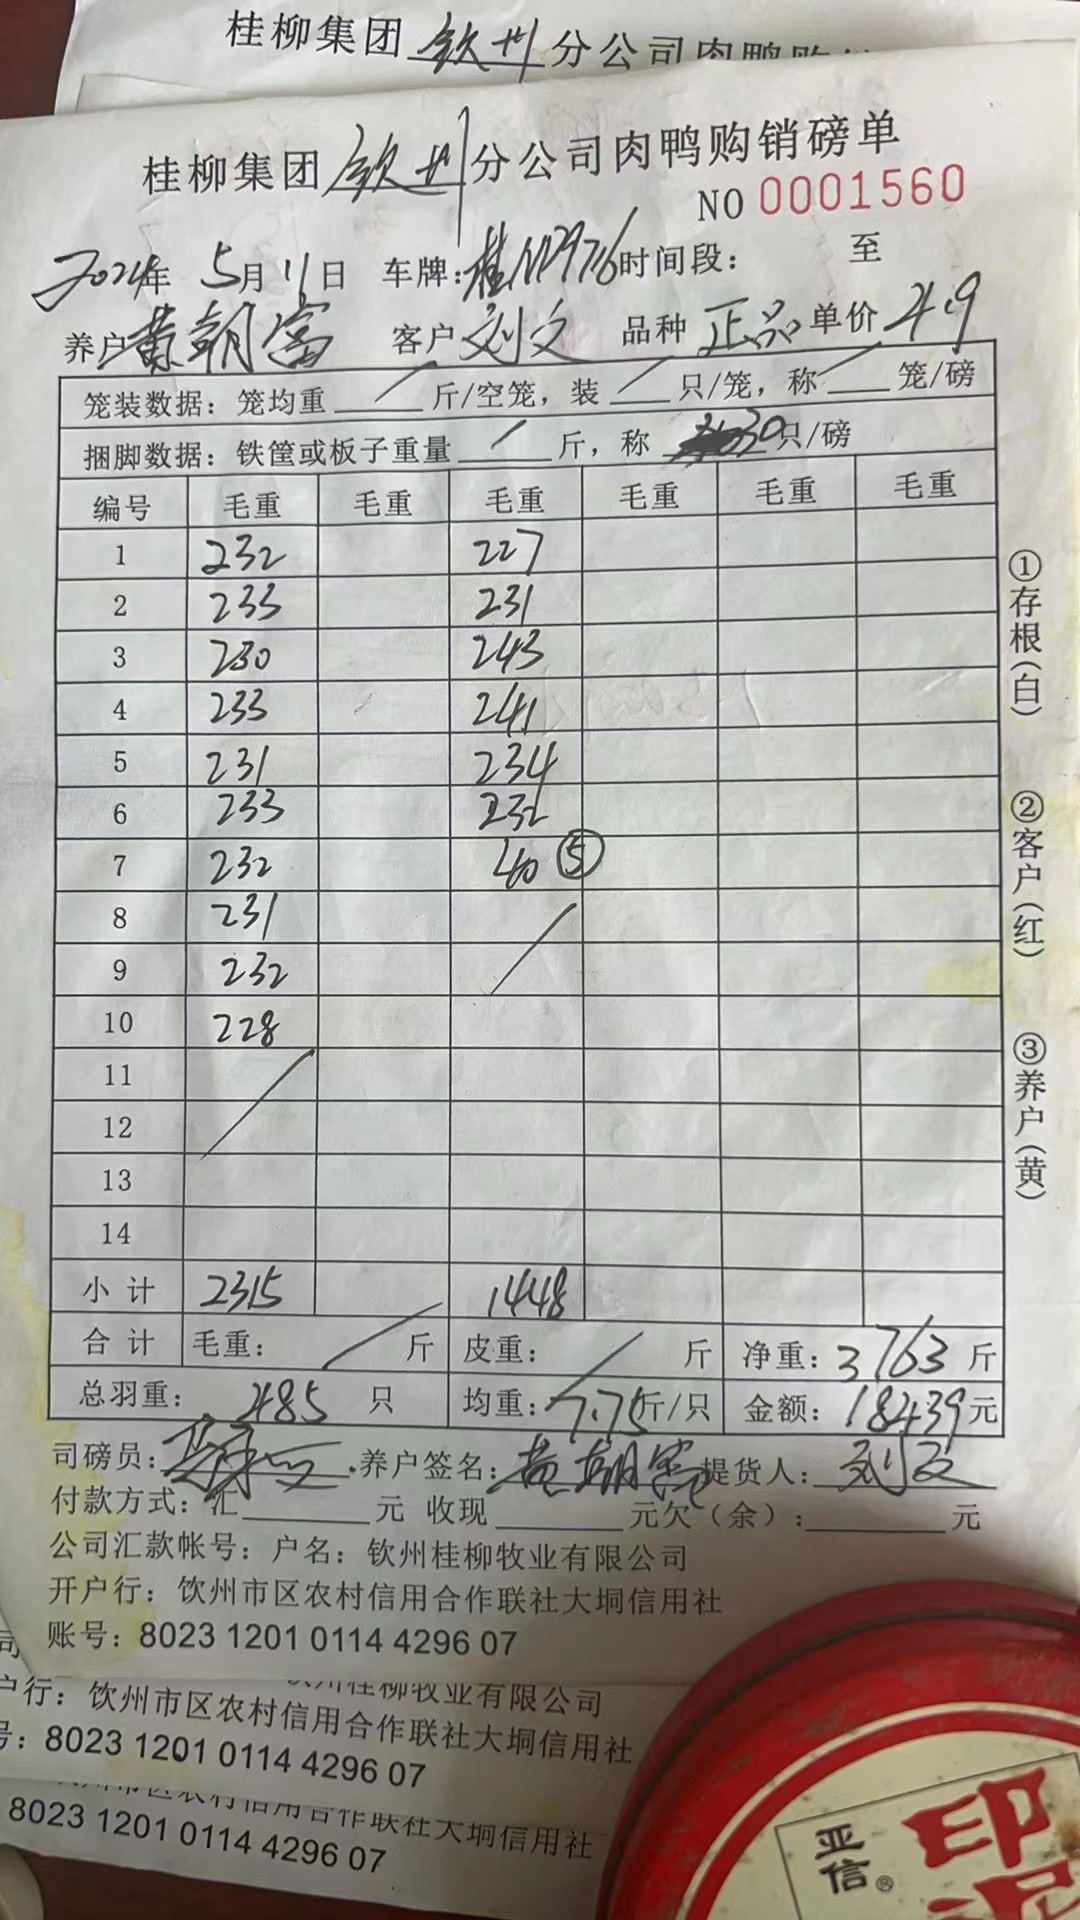 桂柳集团 钦州 分公司肉鸭购
桂柳集团 钦州 分公司肉鸭购销磅单
NO 0001560
2024年 5月11日 车牌: 桂N12976 时间段: 至
养户 黄朝富 客户 刘文 品种 正品 单价 4.9
笼装数据: 笼均重 / 斤/空笼, 装 / 只/笼, 称 / 笼/磅
捆脚数据: 铁筐或板子重量 / 斤, 称 30 只/磅
编号 毛重 毛重 毛重 毛重 毛重 毛重
1 232 227
2 233 231
3 230 243
4 233 241
5 231 234
6 233 232
7 232 40 ⑤
8 231
9 232
10 228
11
12
13
14
小计 2315 1448
合计 毛重: / 斤 皮重: / 斤 净重: 3763 斤
总羽重: 485 只 均重: 7.75 斤/只 金额: 18439 元
司磅员: 养户签名: 黄朝富 提货人: 刘文
付款方式: 汇 元 收现 元欠(余): 元
公司汇款帐号: 户名: 钦州桂柳牧业有限公司
开户行: 饮州市区农村信用合作联社大垌信用社
账号: 8023 1201 0114 4296 07
①存根(白)
②客户(红)
③养户(黄)
司
州桂柳牧业有限公司
户行: 饮州市区农村信用合作联社大垌信用社
号: 8023 1201 0114 4296 07
州市区农村信用合作联社大垌信用社
8023 1201 0114 4296 07
亚信®
印